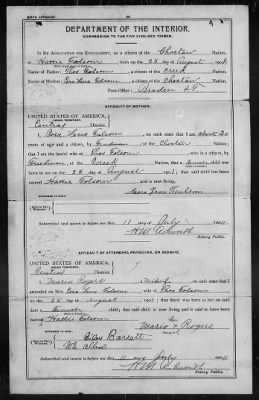 BIRTH AFFIDAVIT.
DEPARTMENT OF THE INTERIOR.
COMMISSION TO THE FIVE CIVILIZED TRIBES.
IN RE APPLICATION FOR ENROLLMENT, as a citizen of the Choctaw Nation,
of Hattie Folsom, born on the 25 day of August, 190
Name of Father: Thos Folsom a citizen of the Creek Nation.
Name of Mother: Cora Lena Folsom a citizen of the Choctaw Nation.
Post-Office Braden I.T.
AFFIDAVIT OF MOTHER.
UNITED STATES OF AMERICA,
INDIAN TERRITORY,
Central District.
I, Cora Lena Folsom, on oath state that I am about 20
years of age and a citizen, by of the Choctaw Nation;
that I am the lawful wife of Thos Folsom, who is a citizen, by
Freedman of the Creek Nation; that a female child was
born to me on the 25 day of August, 1901, that said child has been
named Hattie Folsom, and is now living.
Subscribed and sworn to before me this 11 day of July 190
Notary Public.
AFFIDAVIT OF ATTENDING PHYSICIAN, OR MIDWIFE.
UNITED STATES OF AMERICA,
INDIAN TERRITORY,
Central District.
I, Maria Rogers, a midwife, on oath state that I
attended on Mrs. Cora Lena Folsom, wife of Thos Folsom
on the 25 day of August, 1901; that there was born to her on said
date a female child; that said child is now living and is said to have been
named Hattie Folsom
her
Maria x Rogers
mark
Giles Barrett
Wk Allen
Subscribed and sworn to before me this 11 day of July 190
Notary Public.